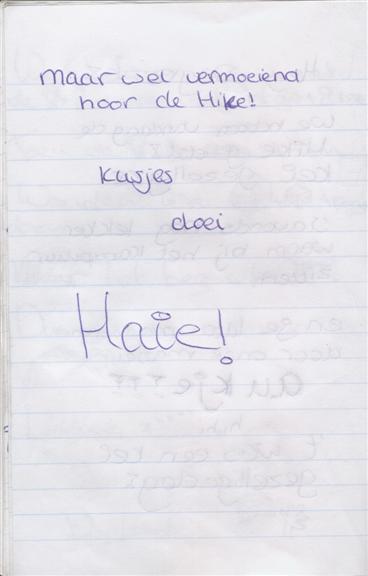 maar wel vermoeiend
hoor de Hike!
kusjes
doei
Haie!